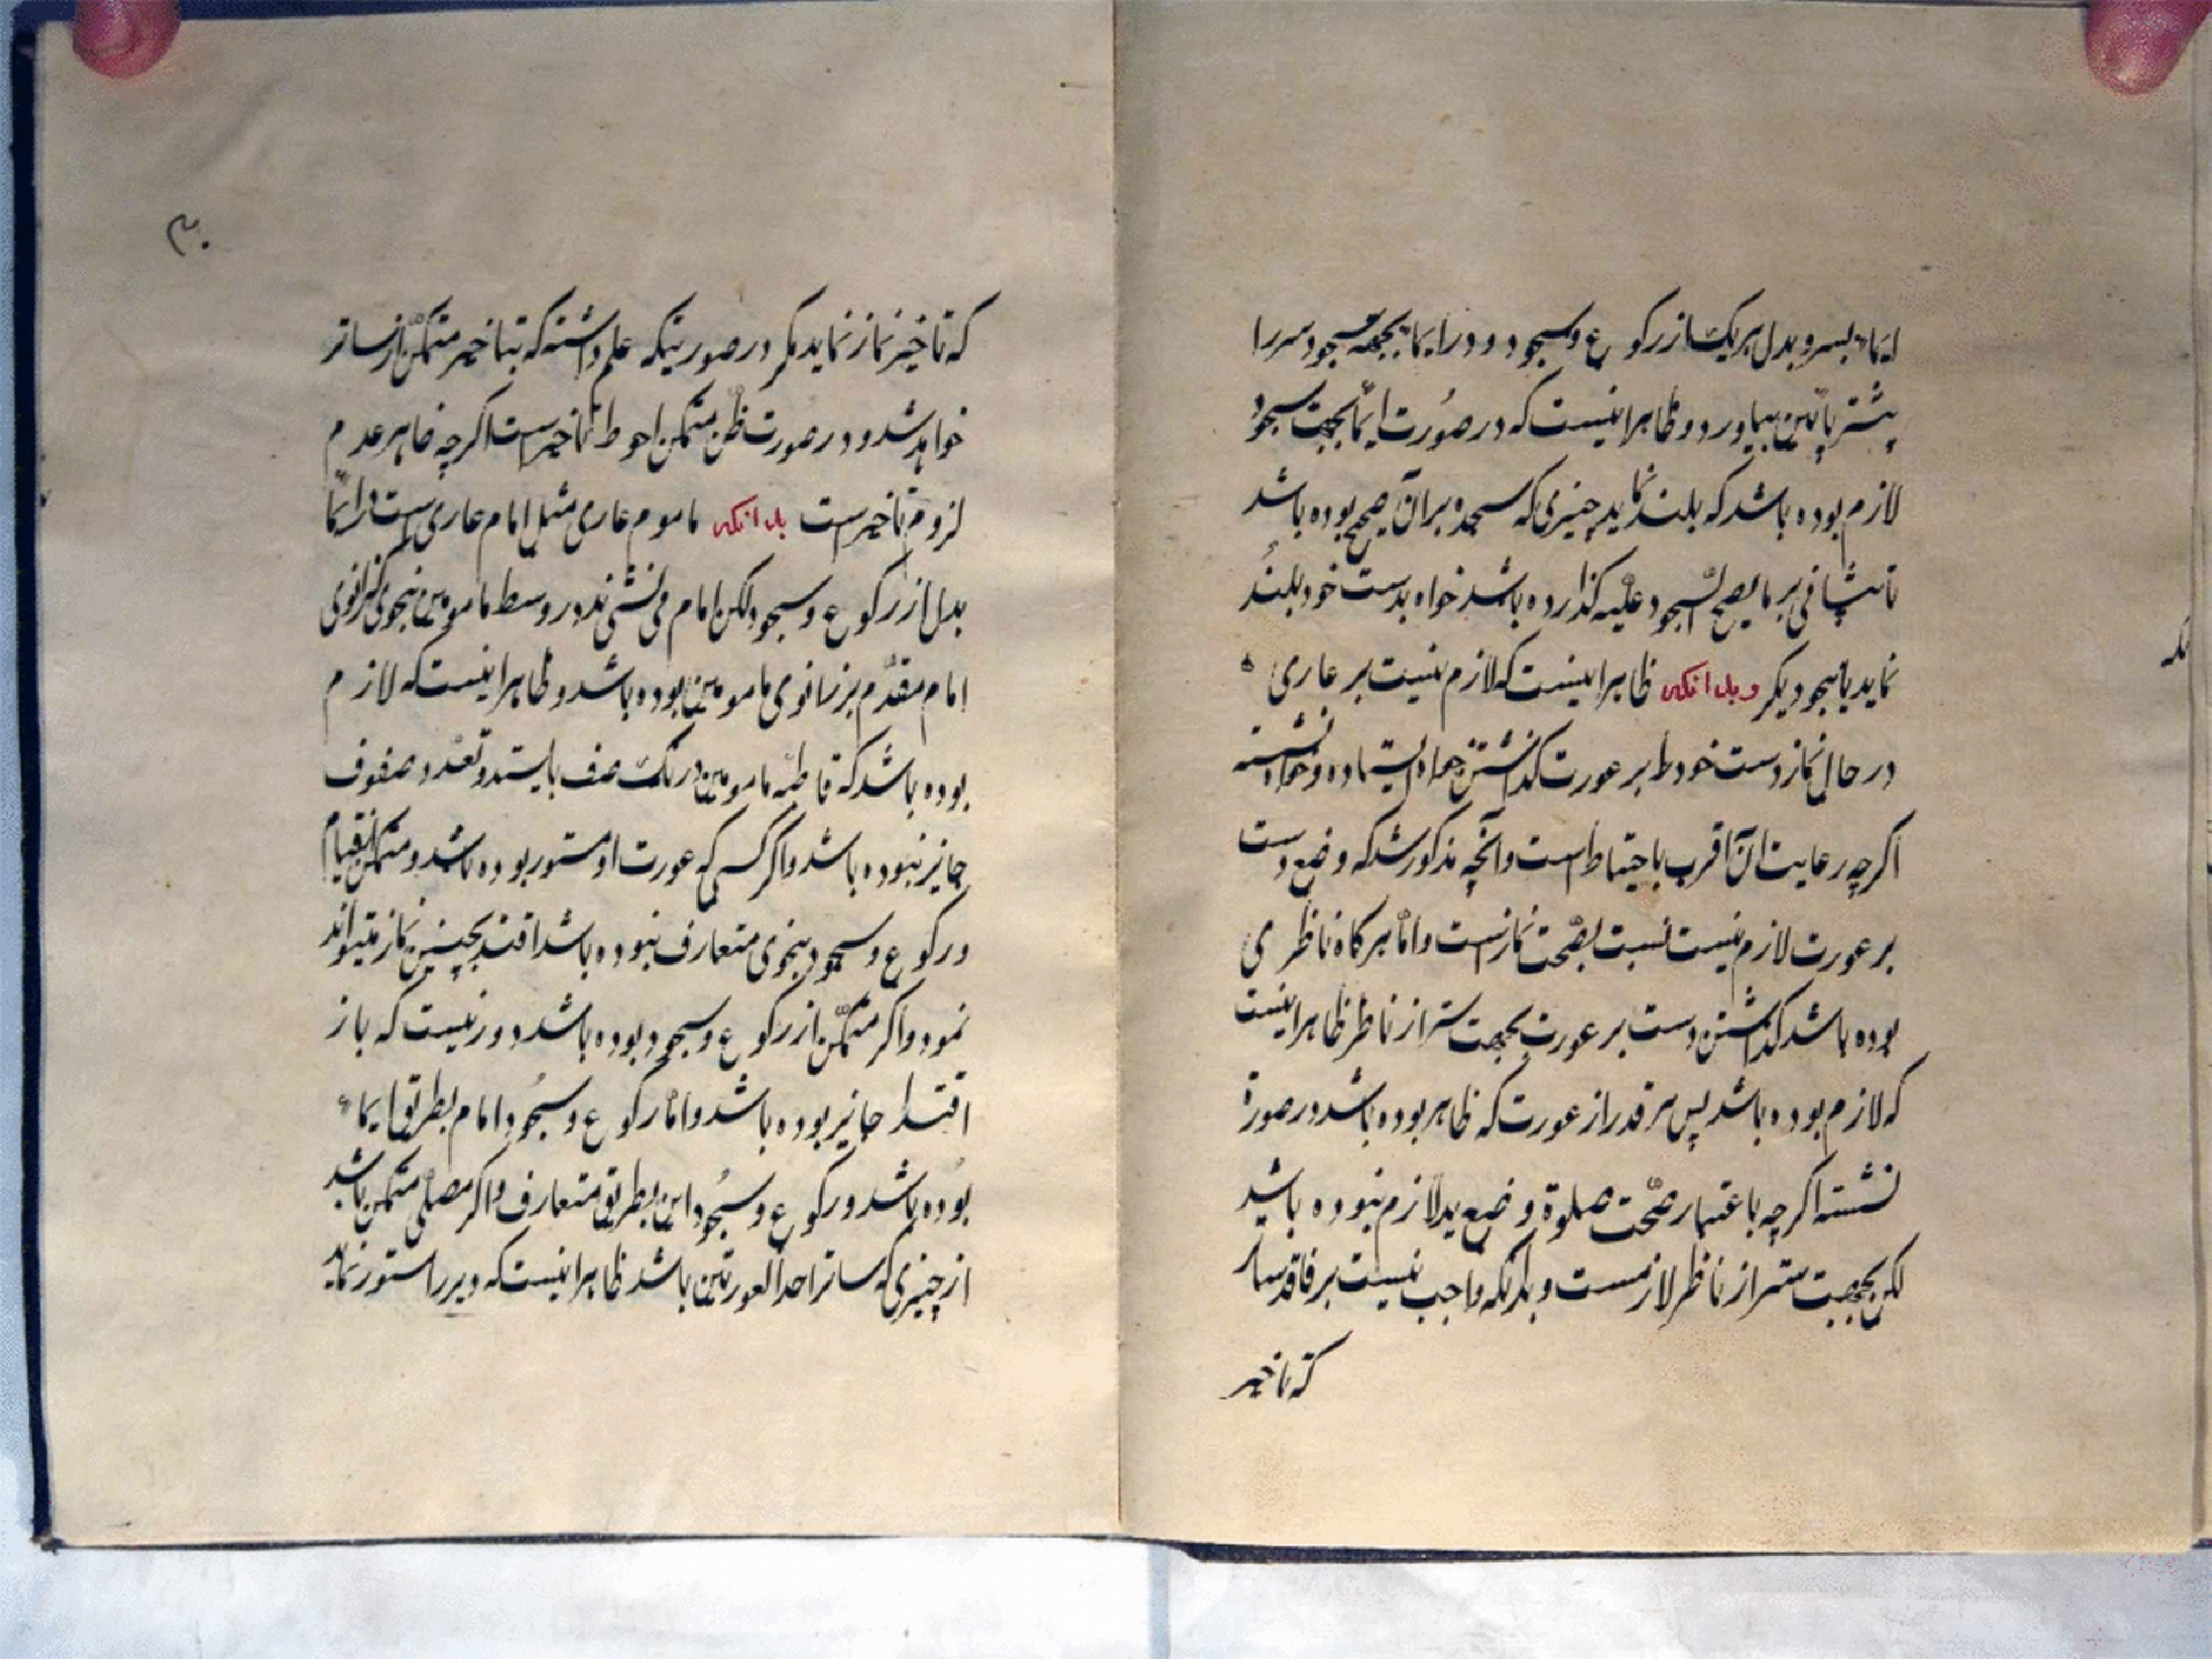 ایماء بسر و بدل هریک از رکوع و سجود و در ایما بجهة سجود سر را
پیشتر پائین بیاورد و ظاهر اینست که در صورت ایما بجهت سجود
لازم بوده باشد که بلند نماید چیزی که سجده بر آن صحیح بوده باشد
تا پیشانی بر ما یصح السجود علیه گذارده باشد خواه بدست خود بلند
نماید یا بنحو دیگر و بدانکه ظاهر اینست که لازم نیست بر عاری
در حال نماز دست خود را بر عورت گذاشتن خواه ایستاده و خواه نشسته
اگرچه رعایت آن اقرب باحتیاط است و آنچه مذکور شد که وضع دست
بر عورت لازم نیست نسبت بصحت نماز است و اما هرگاه ناظری
بوده باشد گذاشتن دست بر عورت بجهت ستر از ناظر ظاهر اینست
که لازم بوده باشد پس هر قدر از عورت که ظاهر بوده باشد در صورة
نشسته اگرچه باعتبار صحّت صلوة وضع ید لازم نبوده باشد
لکن بجهت ستر از ناظر لازمست و بدانکه واجب نیست بر فاقد ساتر
که تاخیر
۳۰
که تاخیر نماز نماید مگر در صورتیکه علم داشته که بتاخیر متمکّن از ساتر
خواهد شد و در صورت ظن متمکن احوط تاخیر است اگرچه ظاهر عدم
لزوم تاخیر است بدانکه ماموم عاری مثل امام عاری است در ایما
بدل از رکوع و سجود لکن امام می نشیند در وسط مامومین بنحوی که زانوی
امام مقدّم بر زانوی مامومین بوده باشد و ظاهر اینست که لازم
بوده باشد که قاطبه مامومین در یک صف بایستد و تعدد صفوف
جایز نبوده باشد و اگر کسی که عورت او مستور بوده باشد و متمکن از قیام
و رکوع و سجود بنحوی متعارف نبوده باشد اقتدا بچنین نماز میتواند
نمود و اگر متمکّن از رکوع و سجود بوده باشد دور نیست که باز
اقتدا جایز بوده باشد و اما رکوع و سجود امام بطریق ایماء
بوده باشد و رکوع و سجود این بطریق متعارف و اگر مصلی متمکن باشد
از چیزی که ساتر احد العورتین باشد ظاهر اینست که دبر را مستور نماید